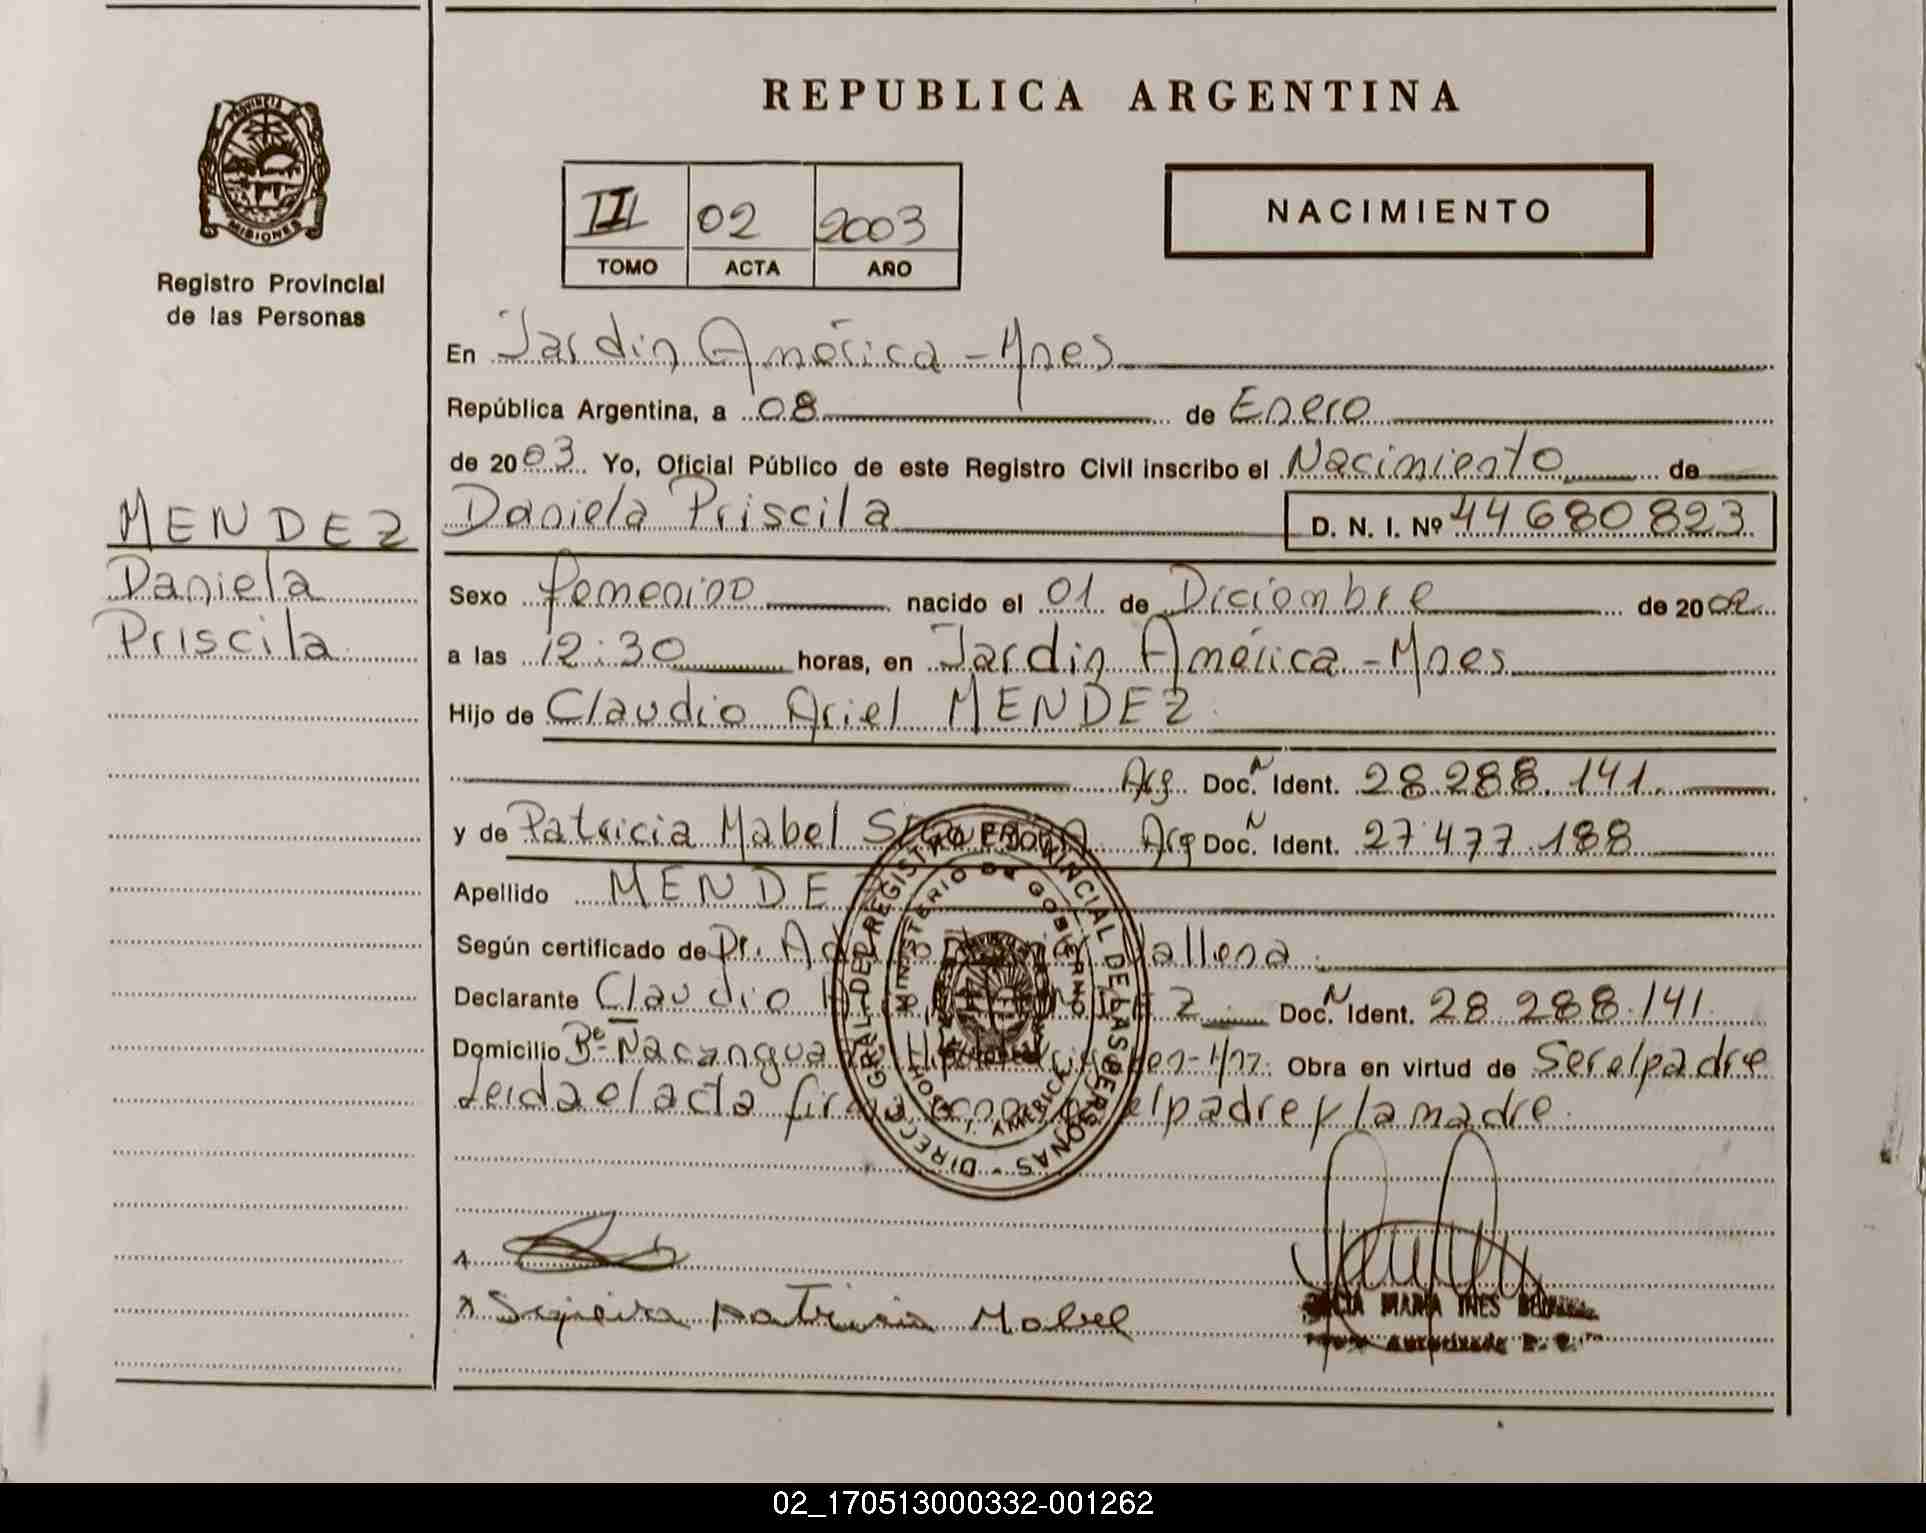 REPUBLICA ARGENTINA
PROVINCIA
MISIONES
Registro Provincial
de las Personas
II 02 2003
TOMO ACTA AÑO
NACIMIENTO
En Jardín América - Mnes
República Argentina, a 08 de Enero
de 2003 Yo, Oficial Público de este Registro Civil inscribo el Nacimiento de
MENDEZ Daniela Priscila D. N. I. Nº 44680823
Daniela
Priscila
Sexo femenino nacido el 01 de Diciembre de 2002
a las 12:30 horas, en Jardín América - Mnes
Hijo de Claudio Ariel MENDEZ
Arg. Doc. N Ident. 28.288.141.
y de Patricia Mabel Arg Doc. N Ident. 27.477.188
Apellido MENDEZ
Según certificado de Dr.
Declarante Claudio Doc. N Ident. 28.288.141.
Domicilio Bº Obra en virtud de Ser el padre
Leida el acta el padre y la madre.
DIRECC. GRAL. DEL REGISTRO PROVINCIAL DE LAS PERSONAS
MINISTERIO DE GOBIERNO
J. AMERICA
Patricia Mabel
MARIA INES
Autorizada
02_170513000332-001262